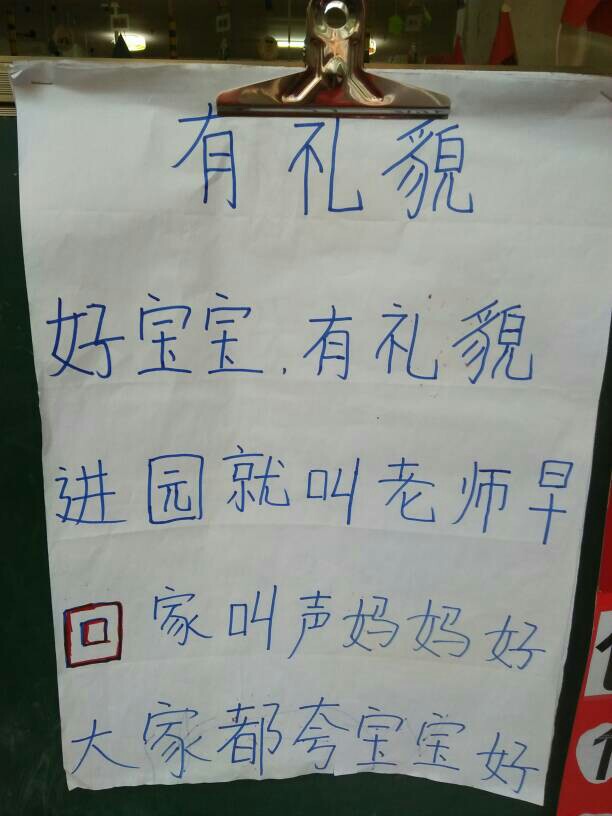 有礼貌
好宝宝.有礼貌
进园就叫老师早
回家叫声妈妈好
大家都夸宝宝好